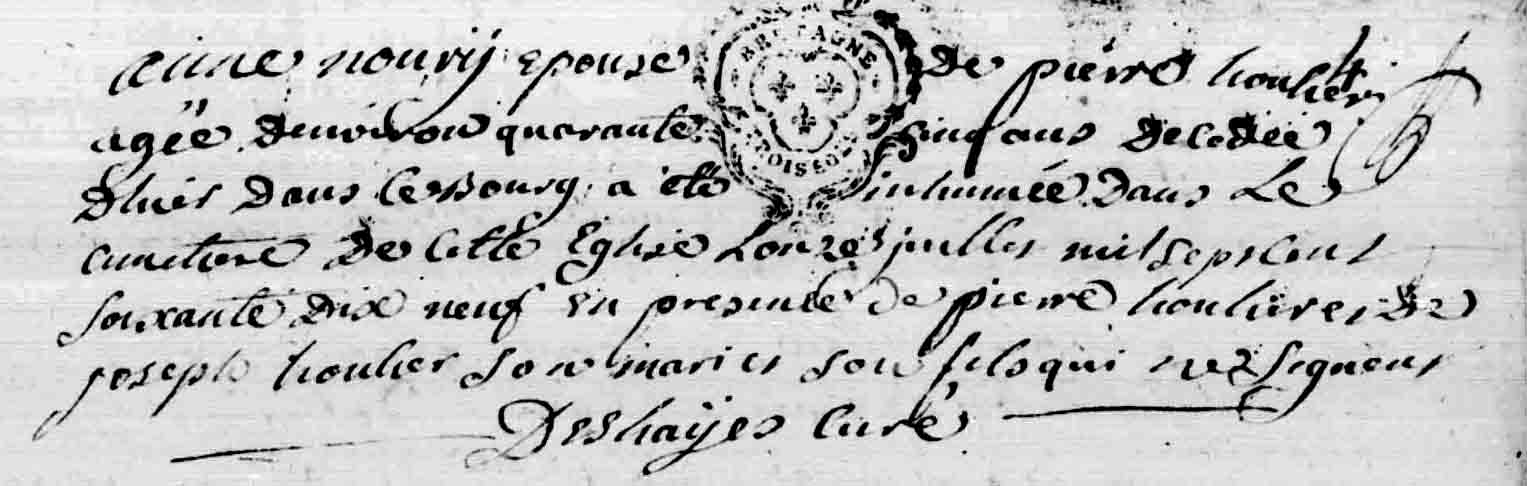 anne noury epouse de pierre houlier
agée denviron quarante cinq ans decedée
dhier dans le Bourg a été inhumée dans Le
cimetiere de cette Eglise Lonze juillet mil sept cent
soixante dix neuf en presence de pierre houlier et de
joseph houlier son mari et son fils qui ne signent
Deshayes curé
BRETAGNE